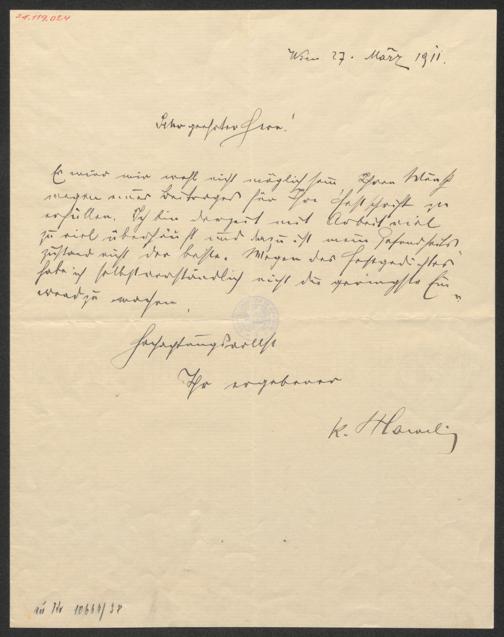 Wien 27. März 1911.
Sehr geehrter Herr!
Es wird mir wohl nicht möglich sein Ihren Wunsch
wegen eines Beitrages für Ihre Festschrift zu
erfüllen. Ich bin derzeit mit Arbeit viel
zu viel überhäuft und dazu ist mein Gesundheits
zustand nicht der beste. Wegen des Festgedichtes
habe ich selbstverständlich nicht die geringste Ein-
wend zu machen.
Hochachtungsvollst
Ihr ergebener
K.